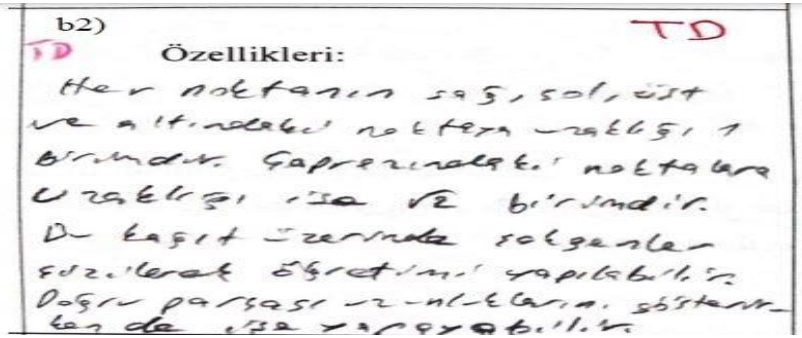 b2)
TD
TD
Özellikleri:
Her noktanın sağ, sol, üst
ve altındaki noktaya uzaklığı 1
birimdir. Çaprazındaki noktalara
uzaklığı ise √2 birimdir.
Bu kağıt üzerinde şekiller
çizilerek öğretimi yapılabilir.
Doğru parçası uzunlukların. gösterir-
ken de işe yarayabilir.